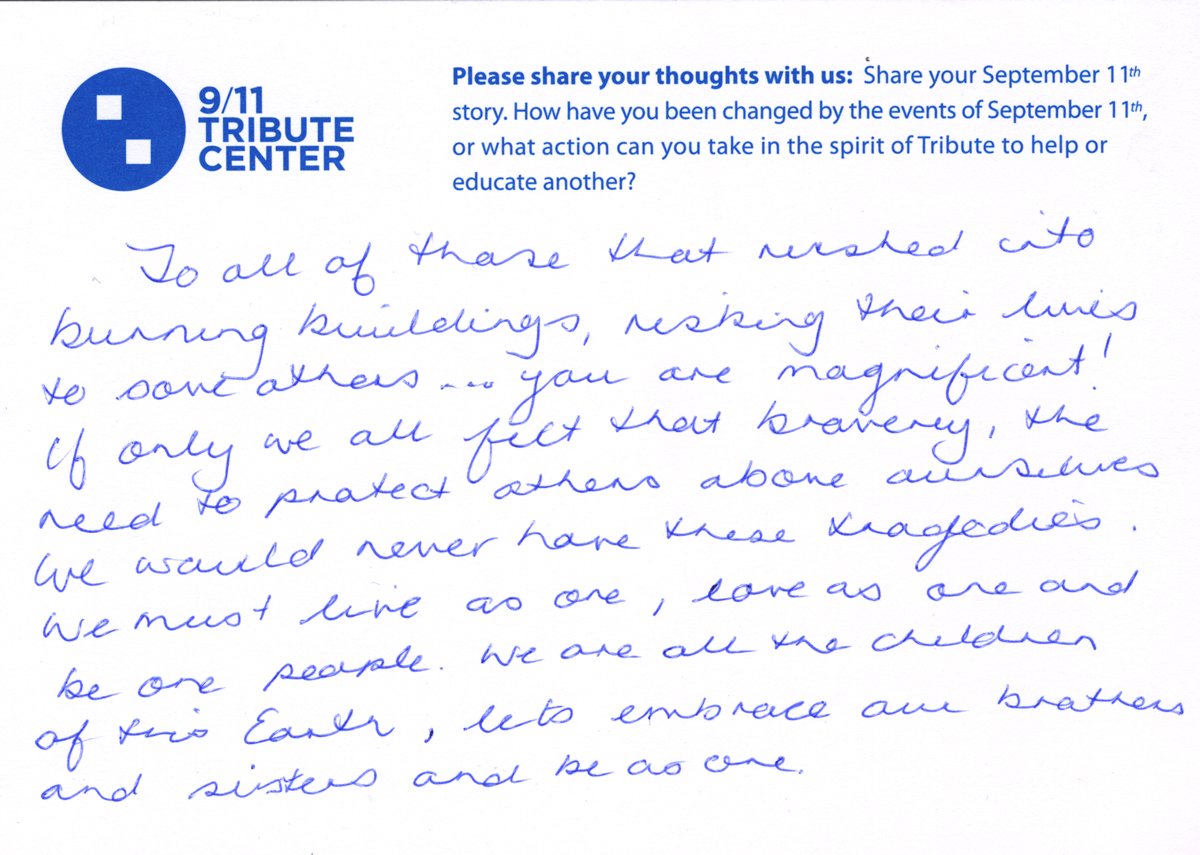 9/11
TRIBUTE
CENTER
Please share your thoughts with us: Share your September 11th
story. How have you been changed by the events of September 11th,
or what action can you take in the spirit of Tribute to help or
educate another?
To all of those that rushed into
burning buildings, risking their lives
to save others... you are magnificent!
If only we all felt that bravery, the
need to protect others above ourselves
We would never have these tragedies.
We must live as one, love as one and
be one people. We are all the children
of this Earth, lets embrace our brothers
and sisters and be as one.